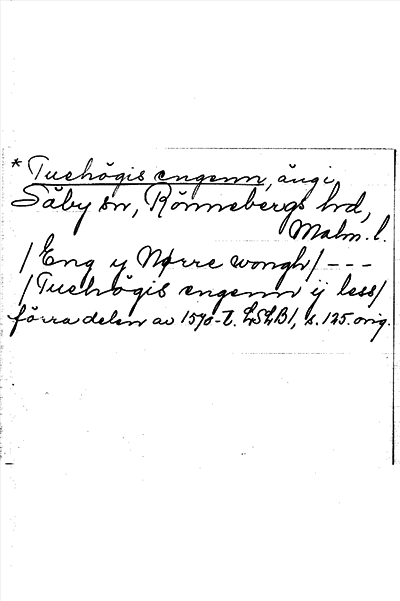 * Tuehögis engenn, ängi
Säby sn, Rönnebergs hd,
Malm. l.
/Eng y Nørre wongh/ ---
/Tuehögis engenn ij less/
förra delen av 1570-t. LSLB1, s. 125. orig.